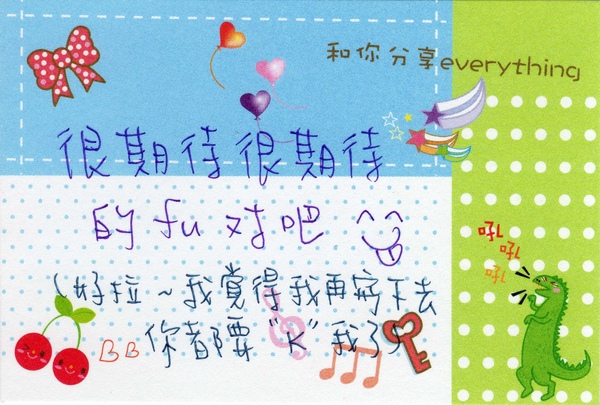 和你分享everything
很期待很期待
的fu对吧
吼
吼
吼
(好拉~我覺得我再寫下去
BB你都要“K”我了